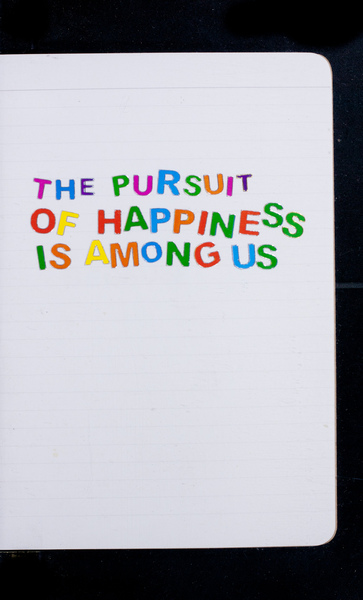 THE PURSUIT
OF HAPPINESS
IS AMONG US